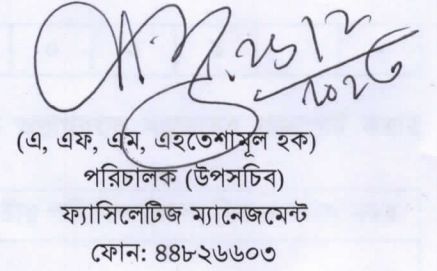 (এ, এফ, এম, এহতেশামূল হক)
পরিচালক (উপসচিব)
ফ্যাসিলেটিজ ম্যানেজমেন্ট
ফোন: ৪৪৮২৬৬০৩